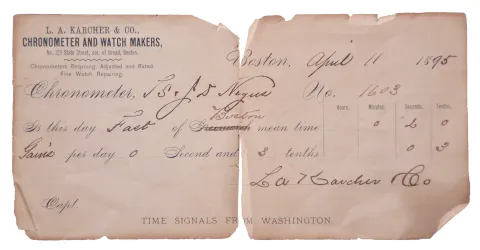 L. A. KARCHER & CO.,
CHRONOMETER AND WATCH MAKERS,
No. 121 State Street, cor. of Broad, Boston.
Chronometers Repairing, Adjusted and Rated.
Fine Watch Repairing.
Boston, April 11 1895
Chronometer, T S & J D Negus No. 1603
Hours. Minutes. Seconds. Tenths.
Boston
Is this day Fast of Greenwich mean time 0 2 0
Gains per day 0 Second and 3 tenths 0 3
L A Karcher & Co
Capt.
TIME SIGNALS FROM WASHINGTON.